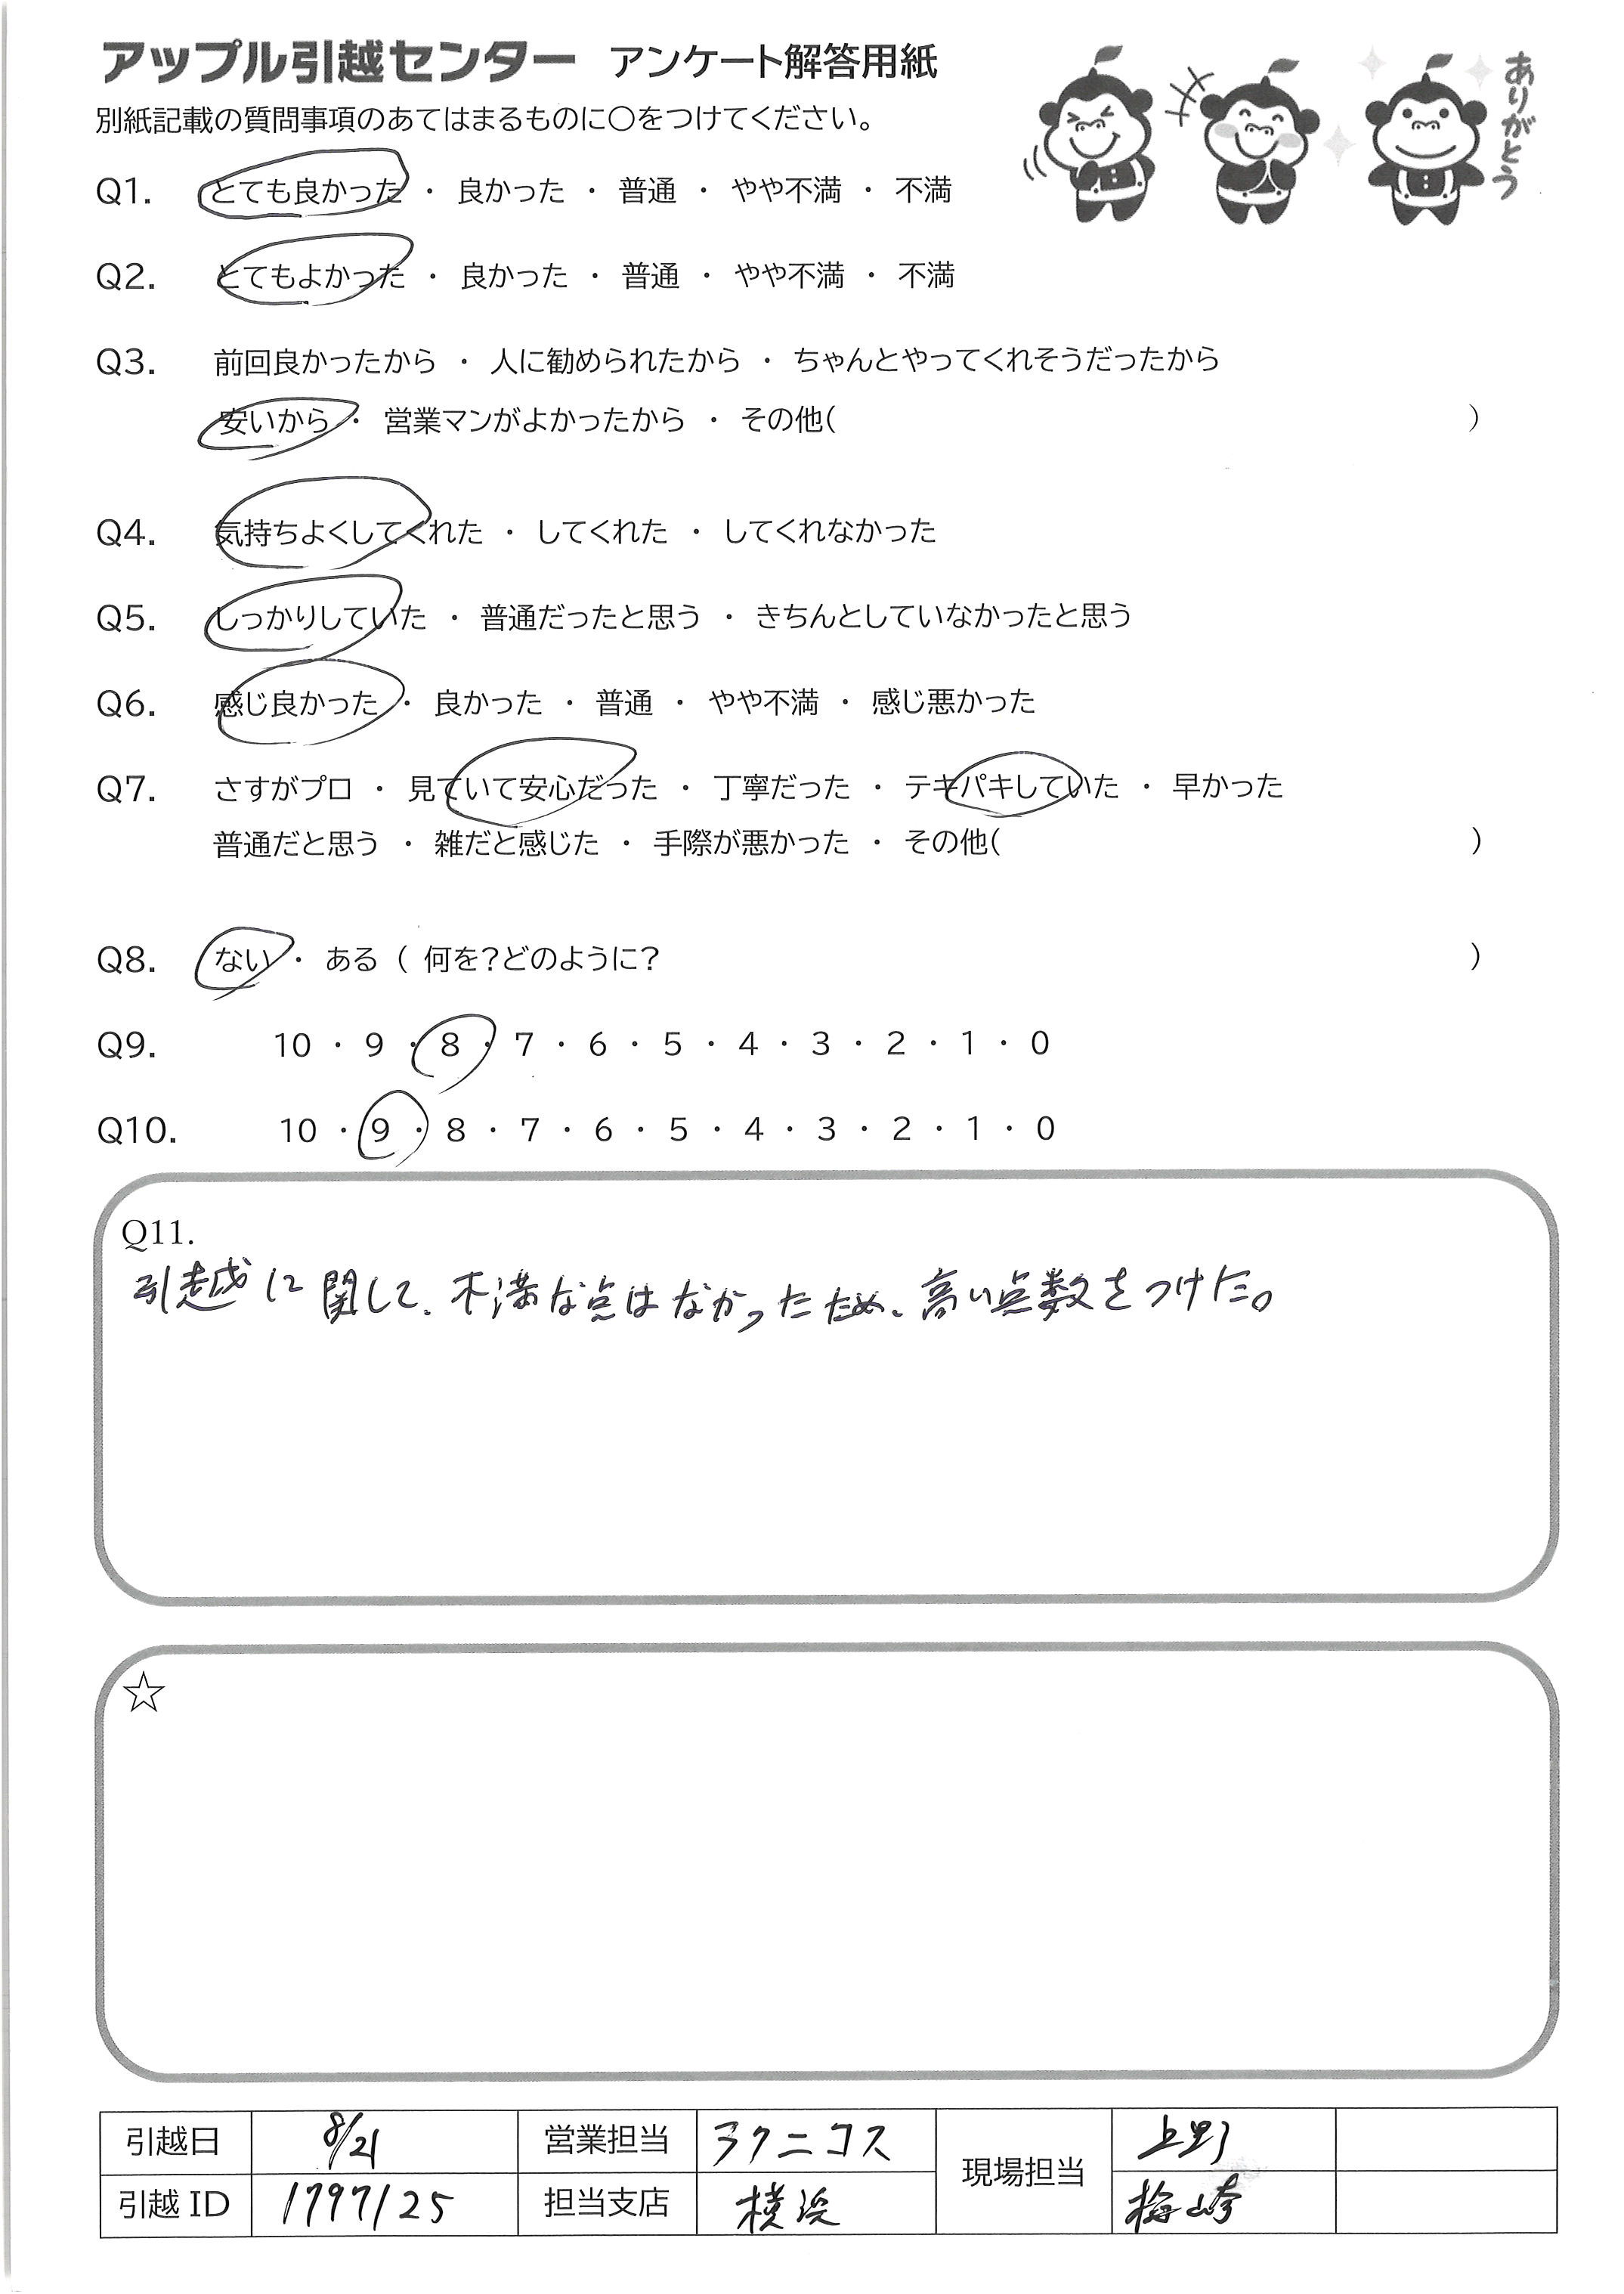 アップル引越センター アンケート解答用紙
ありがとう
別紙記載の質問事項のあてはまるものに○をつけてください。
Q1. とても良かった ・ 良かった ・ 普通 ・ やや不満 ・ 不満
Q2. とてもよかった ・ 良かった ・ 普通 ・ やや不満 ・ 不満
Q3. 前回良かったから ・ 人に勧められたから ・ ちゃんとやってくれそうだったから
安いから ・ 営業マンがよかったから ・ その他( )
Q4. 気持ちよくしてくれた ・ してくれた ・ してくれなかった
Q5. しっかりしていた ・ 普通だったと思う ・ きちんとしていなかったと思う
Q6. 感じ良かった ・ 良かった ・ 普通 ・ やや不満 ・ 感じ悪かった
Q7. さすがプロ ・ 見ていて安心だった ・ 丁寧だった ・ テキパキしていた ・ 早かった
普通だと思う ・ 雑だと感じた ・ 手際が悪かった ・ その他( )
Q8. ない ・ ある ( 何を?どのように? )
Q9. 10 ・ 9 ・ 8 ・ 7 ・ 6 ・ 5 ・ 4 ・ 3 ・ 2 ・ 1 ・ 0
Q10. 10 ・ 9 ・ 8 ・ 7 ・ 6 ・ 5 ・ 4 ・ 3 ・ 2 ・ 1 ・ 0
Q11.
引越に関して、不満な点はなかったため、高い点数をつけた。
☆
引越日 8/21 営業担当 ラクニコス 現場担当 上野
引越 ID 1797125 担当支店 横浜 梅崎